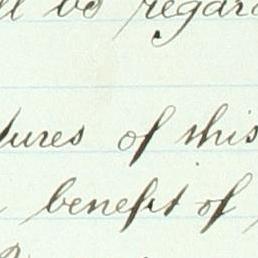 ll be regar
tures of this
benefit of